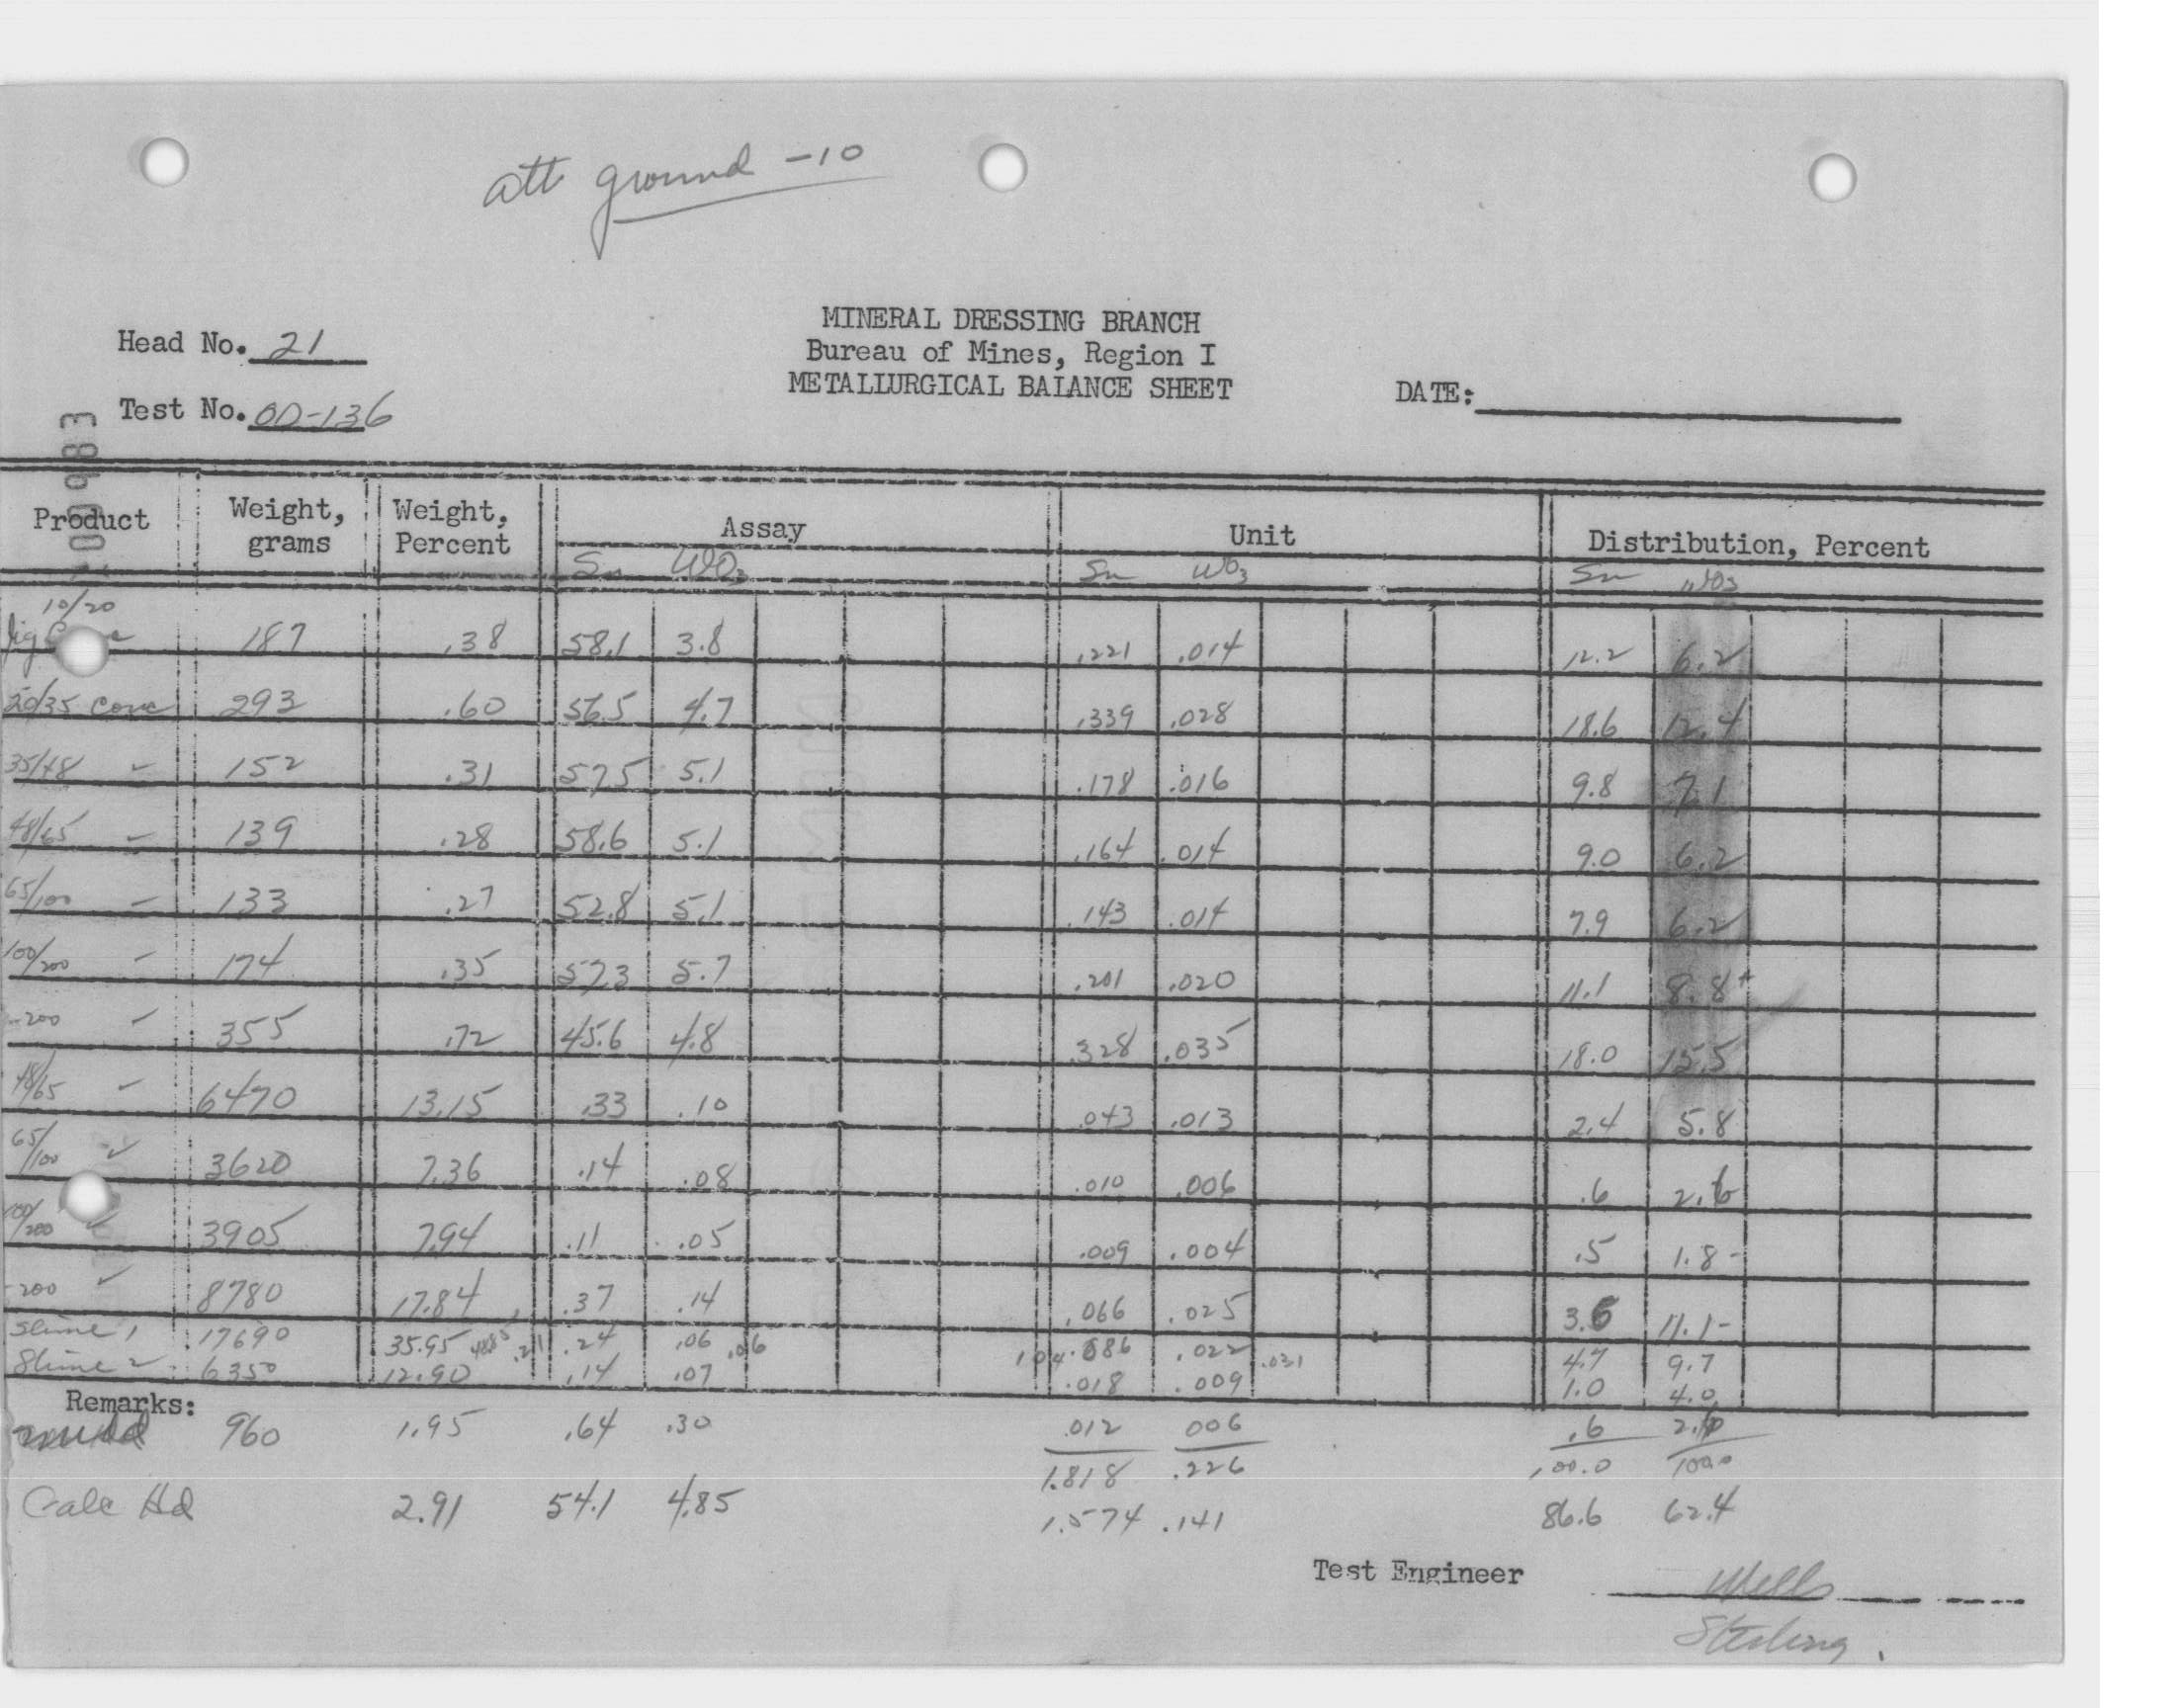 att ground -10
MINERAL DRESSING BRANCH
Head No. 21
Bureau of Mines, Region I
METALLURGICAL BALANCE SHEET
DATE:
Test No. OD-136
Product Weight, grams Weight, Percent Assay Unit Distribution, Percent
Sn WO3 Sn WO3 Sn WO3
10/20
Jig 187 .38 58.1 3.8 .221 .014 12.2 6.2
20/35 Conc 293 .60 56.5 4.7 .339 .028 18.6 12.4
35/48 " 152 .31 57.5 5.1 .178 .016 9.8 7.1
48/65 " 139 .28 58.6 5.1 .164 .014 9.0 6.2
65/100 " 133 .27 52.8 5.1 .143 .014 7.9 6.2
100/200 " 174 .35 57.3 5.7 .201 .020 11.1 8.8+
-200 " 355 .72 45.6 4.8 .328 .035 18.0 15.5
48/65 ✓ 6470 13.15 .33 .10 .043 .013 2.4 5.8
65/100 ✓ 3620 7.36 .14 .08 .010 .006 .6 2.6
100/200 ✓ 3905 7.94 .11 .05 .009 .004 .5 1.8-
-200 ✓ 8780 17.84 .37 .14 .066 .025 3.6 11.1-
Slime 1 17690 35.95 .21 .24 .06 .06 .104 .086 .022 .031 4.7 9.7
Slime 2 6350 12.90 .14 .07 .018 .009 1.0 4.0
Remarks:
mudd 960 1.95 .64 .30 .012 006 .6 2.6
1.818 .226 100.0 100.0
Calc Hd 2.91 54.1 4.85 1.574 .141 86.6 62.4
Test Engineer Wells
Sterling.